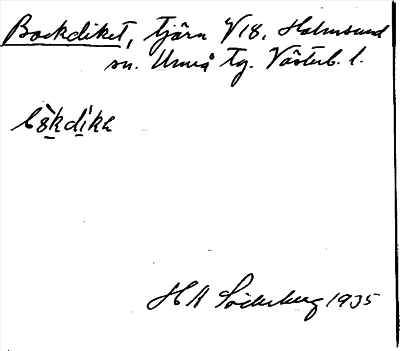 Backdiket, tjärn V18, Holmsund
sn. Umeå tg. Västerb. l.
H A Söderberg 1935